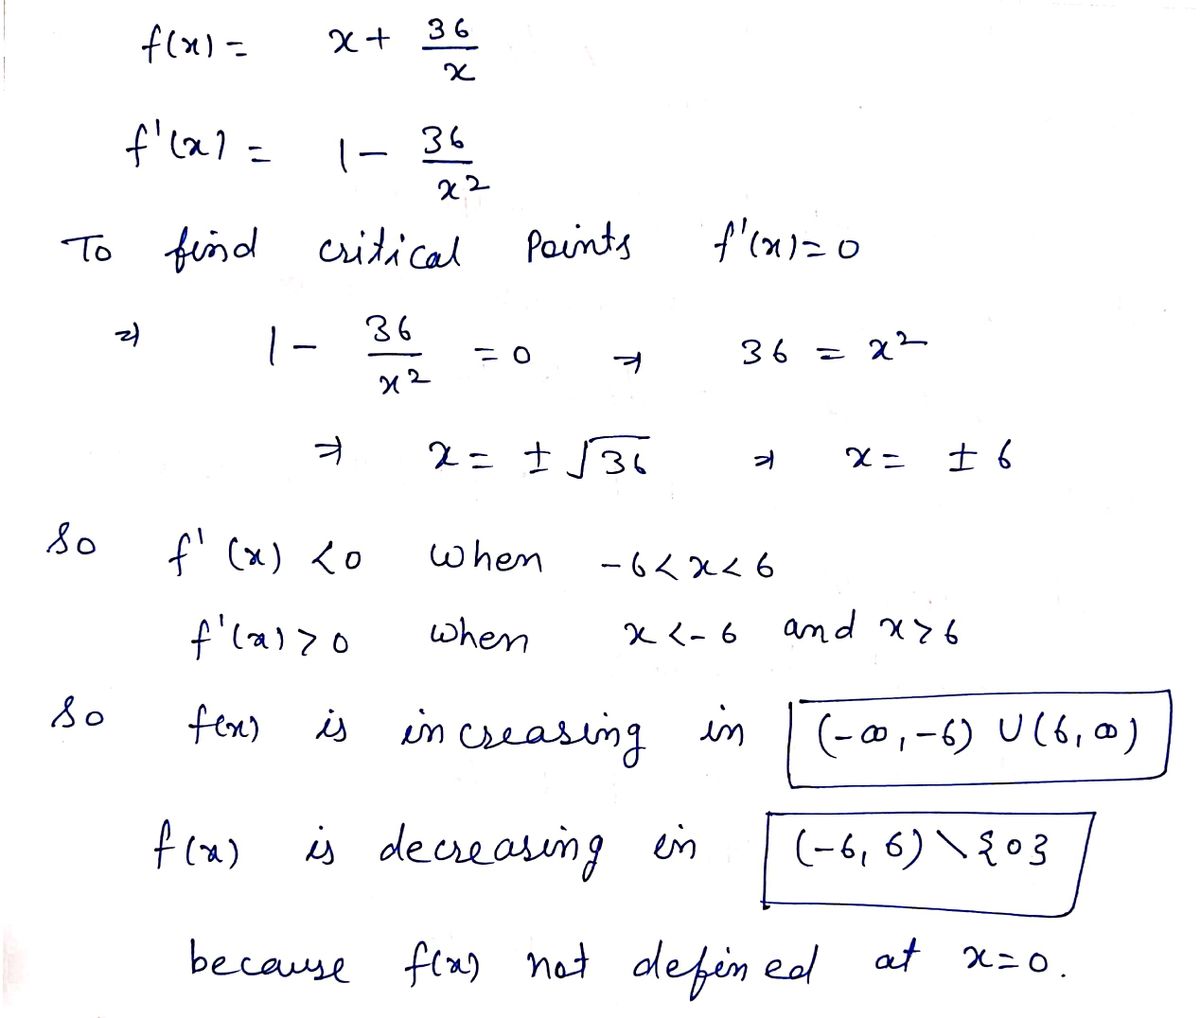 f(x) = x + 36/x
f'(x) = 1 - 36/x²
To find critical Points f'(x) = 0
⇒ 1 - 36/x² = 0 ⇒ 36 = x²
⇒ x = ± √36 ⇒ x = ± 6
So f'(x) < 0 when -6 < x < 6
f'(x) > 0 when x < -6 and x > 6
So f(x) is increasing in (-∞, -6) ∪ (6, ∞)
f(x) is decreasing in (-6, 6) \ {0}
because f(x) not defined at x = 0.